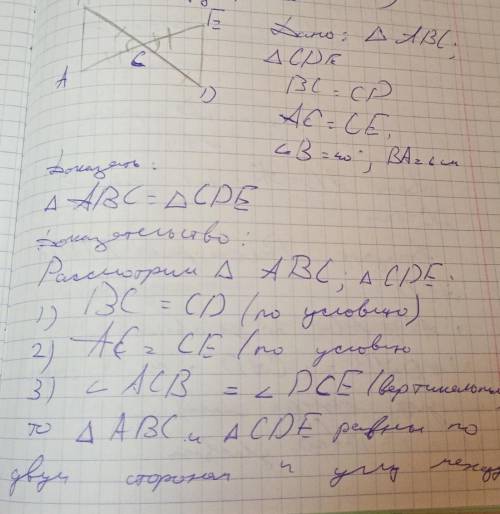 E
A
C
D
Дано: △ ABC;
△CDE
BC = CD
AC = CE,
∠B = 40°; BA = 6 см
Доказать:
△ ABC = △CDE
Доказательство:
Рассмотрим △ ABC; △CDE:
1) BC = CD (по условию)
2) AC = CE (по условию
3) ∠ ACB = ∠ DCE (вертикальн
то △ ABC и △CDE равны по
двум сторонам и углу между